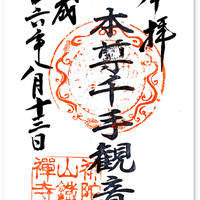 奉拝
本尊千手観音
平成二六年八月十三日
補陀
山鏡
禅寺